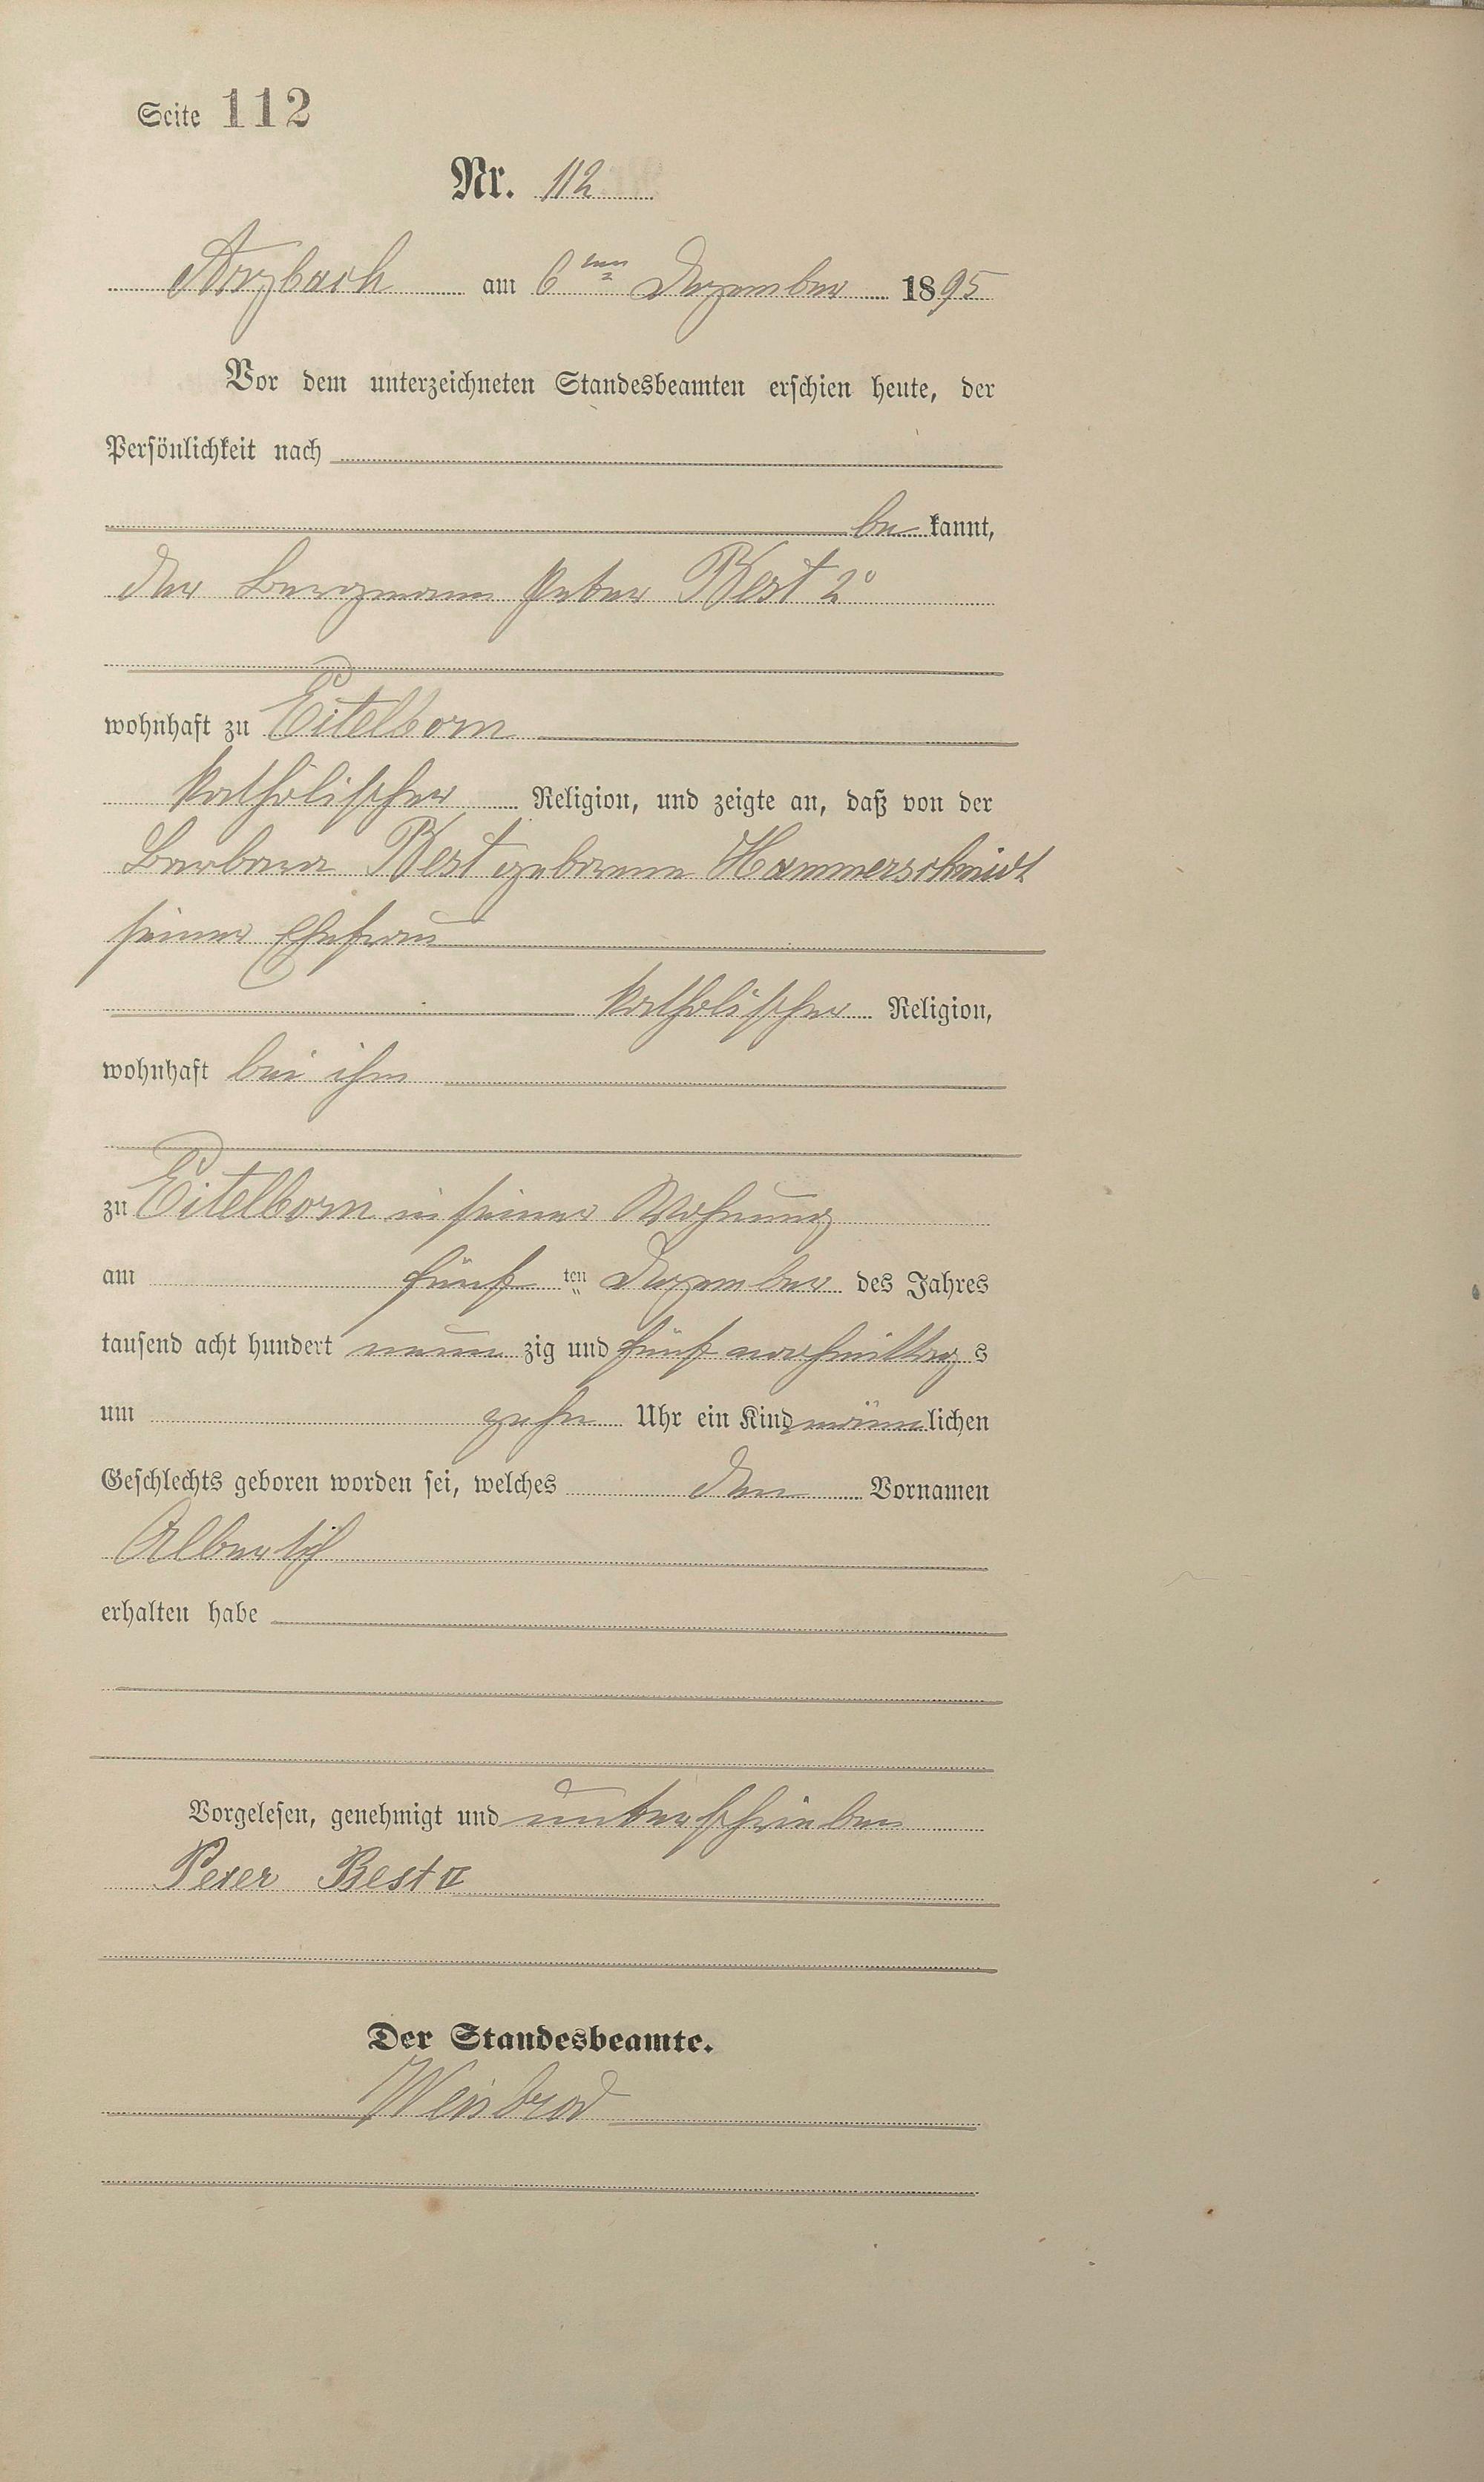 Seite 112
Nr. 112
Arzbach am 6ten Dezember 1895
Vor dem unterzeichneten Standesbeamten erschien heute, der
Persönlichkeit nach
be kannt,
der Bergmann Peter Best 2º
wohnhaft zu Eitelborn
katholischer Religion, und zeigte an, daß von der
Barbara Best geborene Hammerschmidt
seiner Ehefrau
katholischer Religion,
wohnhaft bei ihm
zu Eitelborn in seiner Wohnung
am fünf ten Dezember des Jahres
tausend acht hundert neun zig und fünf nachmittag s
um zehn Uhr ein Kind männ lichen
Geschlechts geboren worden sei, welches den Vornamen
erhalten habe
Vorgelesen, genehmigt und unterschrieben
Peter Best II
Der Standesbeamte.
Weisbrod